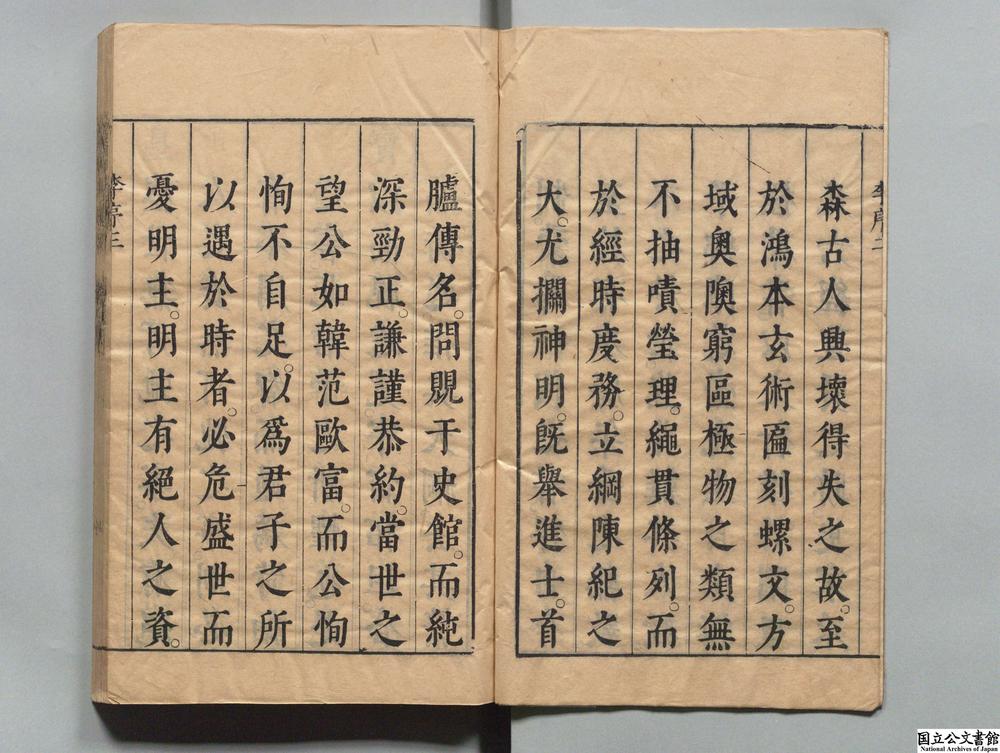 李序二
森古人興壞得失之故。至
於鴻本玄術匾刻螺文。方
域奧隩窮區極物之類無
不抽嘖瑩理。繩貫條列。而
於經時度務。立綱陳紀之
大。尤擱神明。既舉進士。首
臚傳名。問覞于史館。而純
深勁正。謙謹恭約。當世之
望公如韓范歐富。而公恂
恂不自足。以爲君子之所
以遇於時者。必危盛世而
憂明主。明主有絕人之資。
李序三
国立公文書館
National Archives of Japan